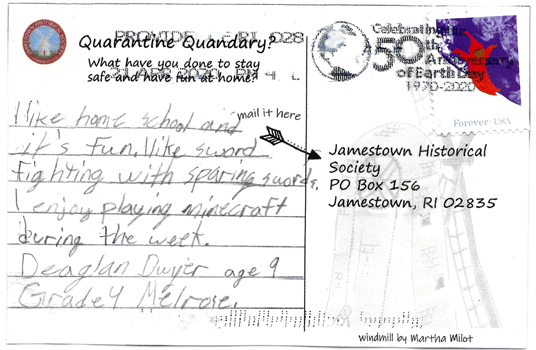 PROVIDENCE RI 028
21 APR 2020 PM 4 L
Quarantine Quandary?
What have you done to stay
safe and have fun at home?
I like home school and
it's fun. I like sword
fighting with sparing swords.
I enjoy playing minecraft
during the week.
Deaglan Dwyer age 9
Grade 4 Melrose.
mail it here
Celebrating the
50th
Anniversary
of Earth Day
1970-2020
Forever·USA
Jamestown Historical
Society
PO Box 156
Jamestown, RI 02835
windmill by Martha Milot